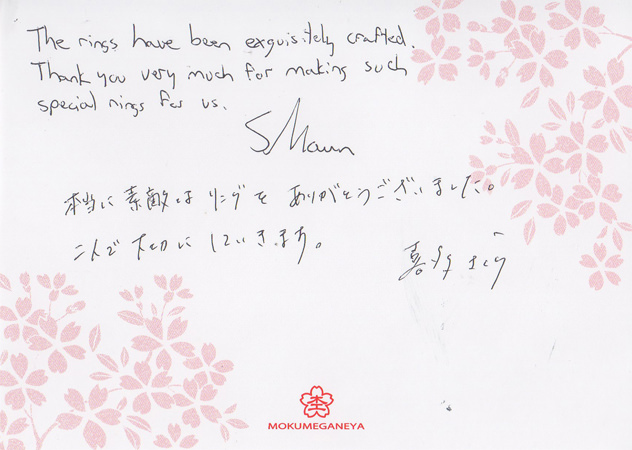 The rings have been exquisitely crafted.
Thank you very much for making such
special rings for us.
本当に素敵なリングをありがとうございました。
二人で大切にしていきます。
MOKUMEGANEYA